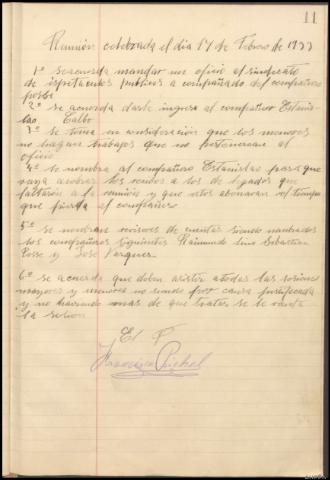 11
Reunión celebrada el dia 17 de Febrero de 1933
1º se acorda mandar un oficio al sindicato
de espectaculos publicos a compañado del compañero
posse
2º se acorda darle ingreso al compañero Estanis-
lao Calbo
3º se toma en consideración que los menores
no hagan trabajos que no pertenezcan al
oficio
4º se nombra al compañero Estanislao para que
vaya a cobrar los recibos a los delegados que
faltaron a la reunión y que estos abonaran el tiempo
que pierda el compañero
5º se nombran revisores de cuentas siendo nombrados
los compañeros siguientes Raimundo Lino Sebastian
Posse y Jose Vazquez
6º se acuerda que deben asistir a todas las reuniones
mayores y menores no siendo por causa justificada
y no habiendo mas de que tratar se le vanta
la sesion
El P
Francisco